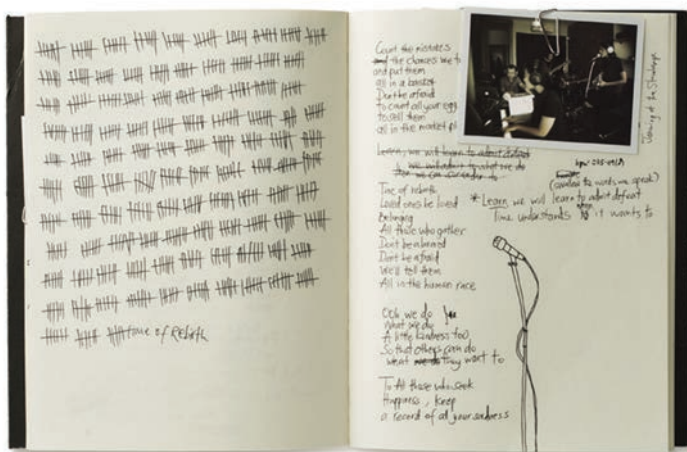 time of Rebirth
Count the mistakes
the chances we
and put them
all in a basket
Don't be afraid
to count all your egg
to sell them
all in the market
Learn, we will learn to admit defeat
Time of rebirth
Loved ones be loved
Belonging
All those who gather
Don't be
Don't be afraid
We'll tell them
All in the human race
Ooh we do
What we do
A little kindness too
So that others can do
what we do they want to
To All those who seek
Happiness, keep
a record of all your sadness
(words we speak)
* Learn, we will learn to admit defeat
Time understands it wants to